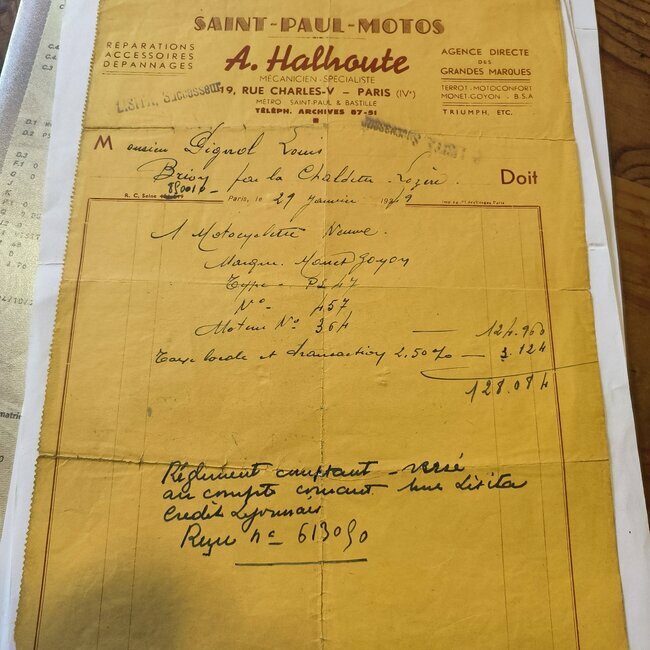 SAINT-PAUL-MOTOS
RÉPARATIONS
ACCESSOIRES
DÉPANNAGES
A. Halhoute
MÉCANICIEN-SPÉCIALISTE
19, RUE CHARLES-V - PARIS (IVe)
MÉTRO SAINT-PAUL & BASTILLE
TÉLÉPH. ARCHIVES 87-51
AGENCE DIRECTE
DES
GRANDES MARQUES
TERROT-MOTOCONFORT
MONET-GOYON - B.S.A
TRIUMPH, ETC.
Successeur
Monsieur Dignol Louis
Brion par la Chaldette Lozère. Doit
R. C. Seine
Paris, le 29 Janvier 1949
1 Motocyclette Neuve.
Marque. Monet Goyon
Type -
N° - 457
Moteur N° 364 — 124.960
Taxe locale et transaction 2.50% — 3.124
128.084
Règlement comptant - versé
au compte courant
Credit Lyonnais
Reçu n° 613090